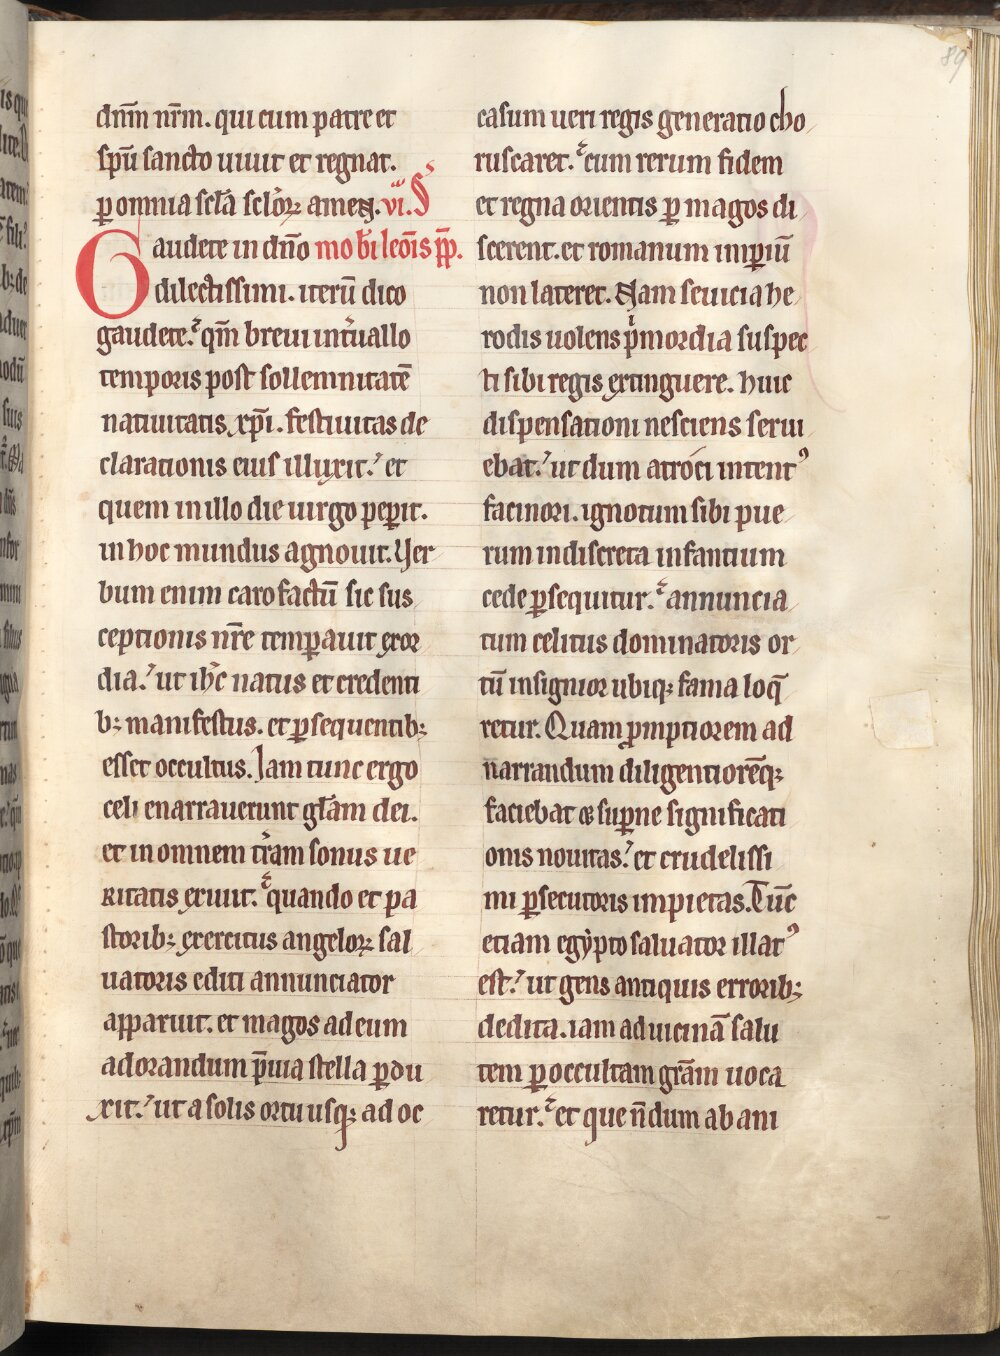 dñm nr̄m. qui cum patre et
sp̄u sancto uiuit et regnat.
ꝑ omnia scl̄a scl̓oꝝ amen. vi. S̓
Gaudete in dn̄o mo b̄i leōis pp̄.
dilectissimi. iterū dico
gaudete.᷾ qm̄ breui int̓uallo
temporis post sollemnitatē
natiuitatis xp̄i. festiuitas de
clarationis eius illuxit.᷾ et
quem in illo die uirgo peꝑit.
in hoc mundus agnouit. Uer
bum enim caro factū sic sus
ceptionis nr̄e temꝑauit exor
dia.᷾ ut ih̄c natus et credenti
bꝫ manifestus. et ꝑsequentibꝫ
esset occultus. Iam tunc ergo
celi enarrauerunt gl̄am dei.
et in omnem t̓ram sonus ue
ritatis exiuit.᷾ quando et pa
storibꝫ exercitus angeloꝝ sal
uatoris editi annunciator
apparuit. et magos ad eum
adorandum p̄uia stella ꝑdu
xit.᷾ ut a solis ortu usqꝫ ad oc
casum ueri regis generatio cho
ruscaret.᷾ cum rerum fidem
et regna orientis ꝑ magos di
scerent. et romanum imꝑiū
non lateret. Nam seuicia he
rodis uolens pⁱmordia suspec
ti sibi regis extinguere. huic
dispensationi nesciens serui
ebat.᷾ ut dum atroci intentꝰ
facinori. ignotum sibi pue
rum indiscreta infantium
cede ꝑsequitur.᷾ annuncia
tum celitus dominatoris or
tū insignior ubiqꝫ fama loq̄
retur. Quam ꝓmptiorem ad
narrandum diligentiorēqꝫ
faciebat & suꝑne significati
onis nouitas.᷾ et crudelissi
mi ꝑsecutoris impietas. Tūc
etiam egẏpto saluator illatꝰ
est.᷾ ut gens antiquis erroribꝫ
dedita. iam ad uicinā salu
tem ꝑ occultam gr̄am uoca
retur.᷾ et que n̄dum ab ani
89